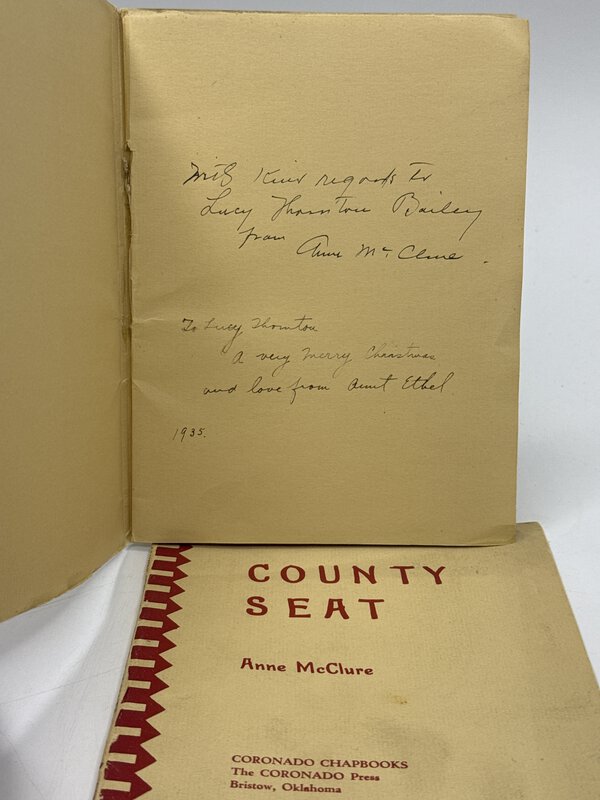 With Kind regards to
Lucy Thornton Bailey
from
Anne McClure.
To Lucy Thornton
A very Merry Christmas
and love from Aunt Ethel
1935.
COUNTY
SEAT
Anne McClure
CORONADO CHAPBOOKS
The CORONADO Press
Bristow, Oklahoma